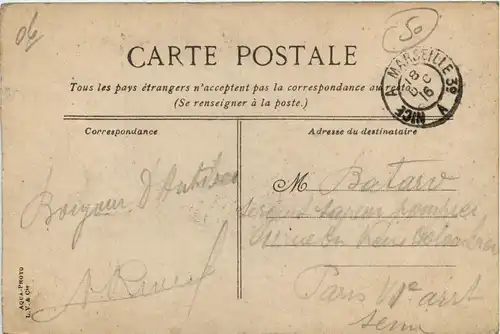 50
CARTE POSTALE
Tous les pays étrangers n'acceptent pas la correspondance au recto
(Se renseigner à la poste.)
NICE A MARSEILLE 39
Correspondance
Adresse du destinataire
Bonjour d'Antibes
M Batard
sapeur pompier
rue du Vieux Colombier
Paris VIe arrt
Seine
AQUA-PHOTO
L. V. & Cie